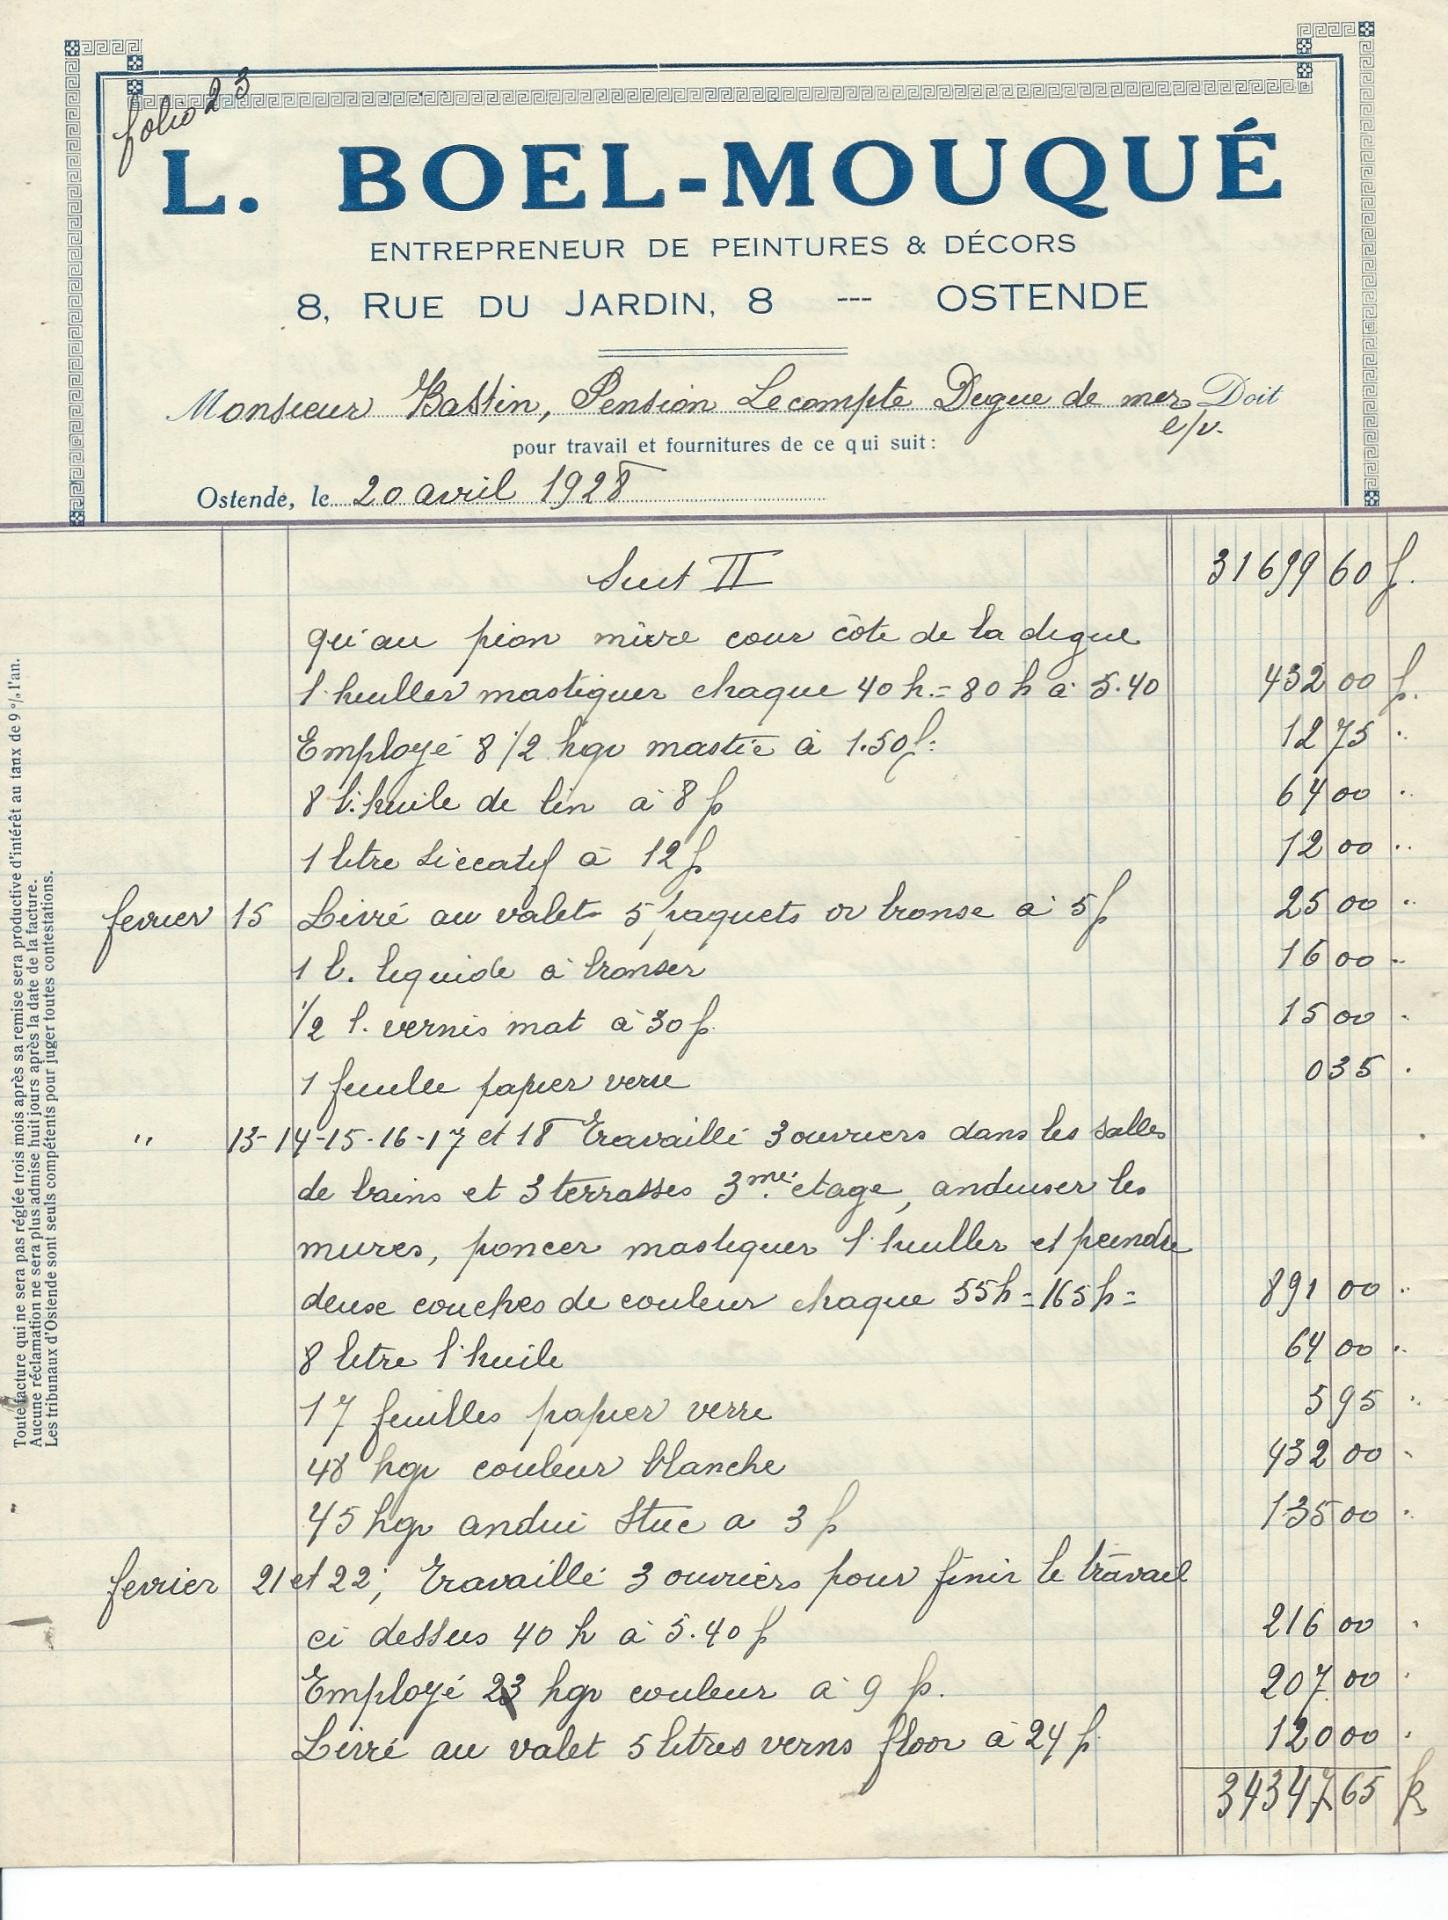 folio 23
L. BOEL-MOUQUÉ
ENTREPRENEUR DE PEINTURES & DÉCORS
8, RUE DU JARDIN, 8 --- OSTENDE
Monsieur Bastin, Pension Lecompte Degue de mer Doit
e/v.
pour travail et fournitures de ce qui suit:
Ostende, le 20 avril 1928
Suit II 31699 60 f.
qu'au mure cour côte de la degue
l'huller mastiquer chaque 40 h. = 80 h à 5.40 432 00 f.
Employé 8 1/2 kgr mastic à 1.50 f. 12 75
8 l. huile de lin à 8 f 64 00
1 litre siccatif à 12 f 12 00
fevrier 15 Livré au valet 5 paquets or bronse à 5 f 25 00
1 l. liquide à bronser 16 00
1/2 l. vernis mat à 30 f. 15 00
1 feuille papier verre 0 35
" 13-14-15-16-17 et 18 Travaillé 3 ouvriers dans les salles
de bains et 3 terrasses 3me etage, anduiser les
mures, poncer mastiquer l'huller et peindre
deuse couches de couleur chaque 55 h = 165 h = 891 00
8 litre l'huile 64 00
17 feuilles papier verre 5 95
48 kgr couleur blanche 432 00
45 kgr andui Stuc a 3 f 135 00
fevrier 21 et 22, Travaillé 3 ouvriers pour finir le travail
ci dessus 40 h à 5.40 f 216 00
Employé 23 kgr couleur à 9 f. 207 00
Livré au valet 5 litres verns floor à 24 f 120 00
34347 65 fr
Toute facture qui ne sera pas réglée trois mois après sa remise sera productive d'intérêt au taux de 9 % l'an.
Aucune réclamation ne sera plus admise huit jours après la date de la facture.
Les tribunaux d'Ostende sont seuls compétents pour juger toutes contestations.